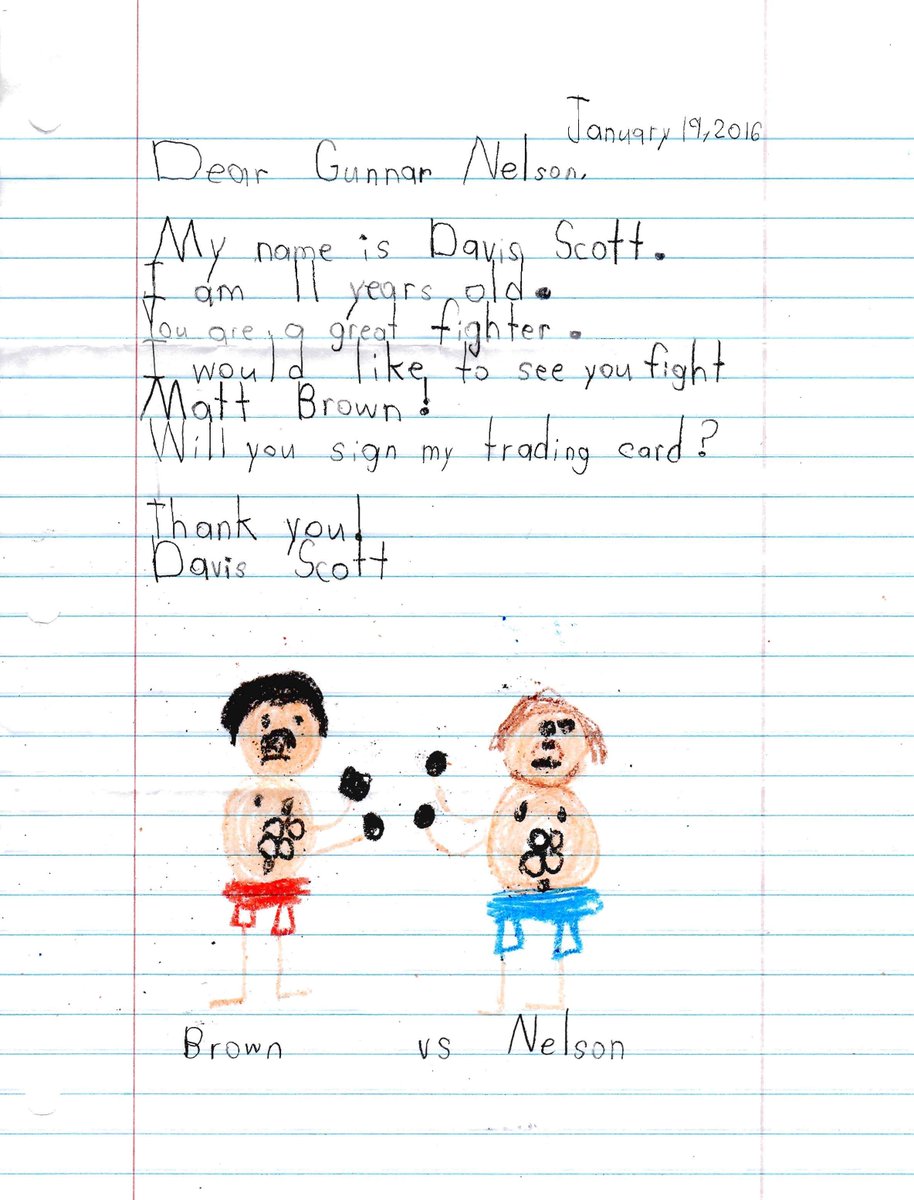 January 19, 2016
Dear Gunnar Nelson,
My name is Davis Scott.
I am 11 years old.
You are a great fighter.
I would like to see you fight
Matt Brown!
Will you sign my trading card?
Thank you!
Davis Scott
Brown vs Nelson